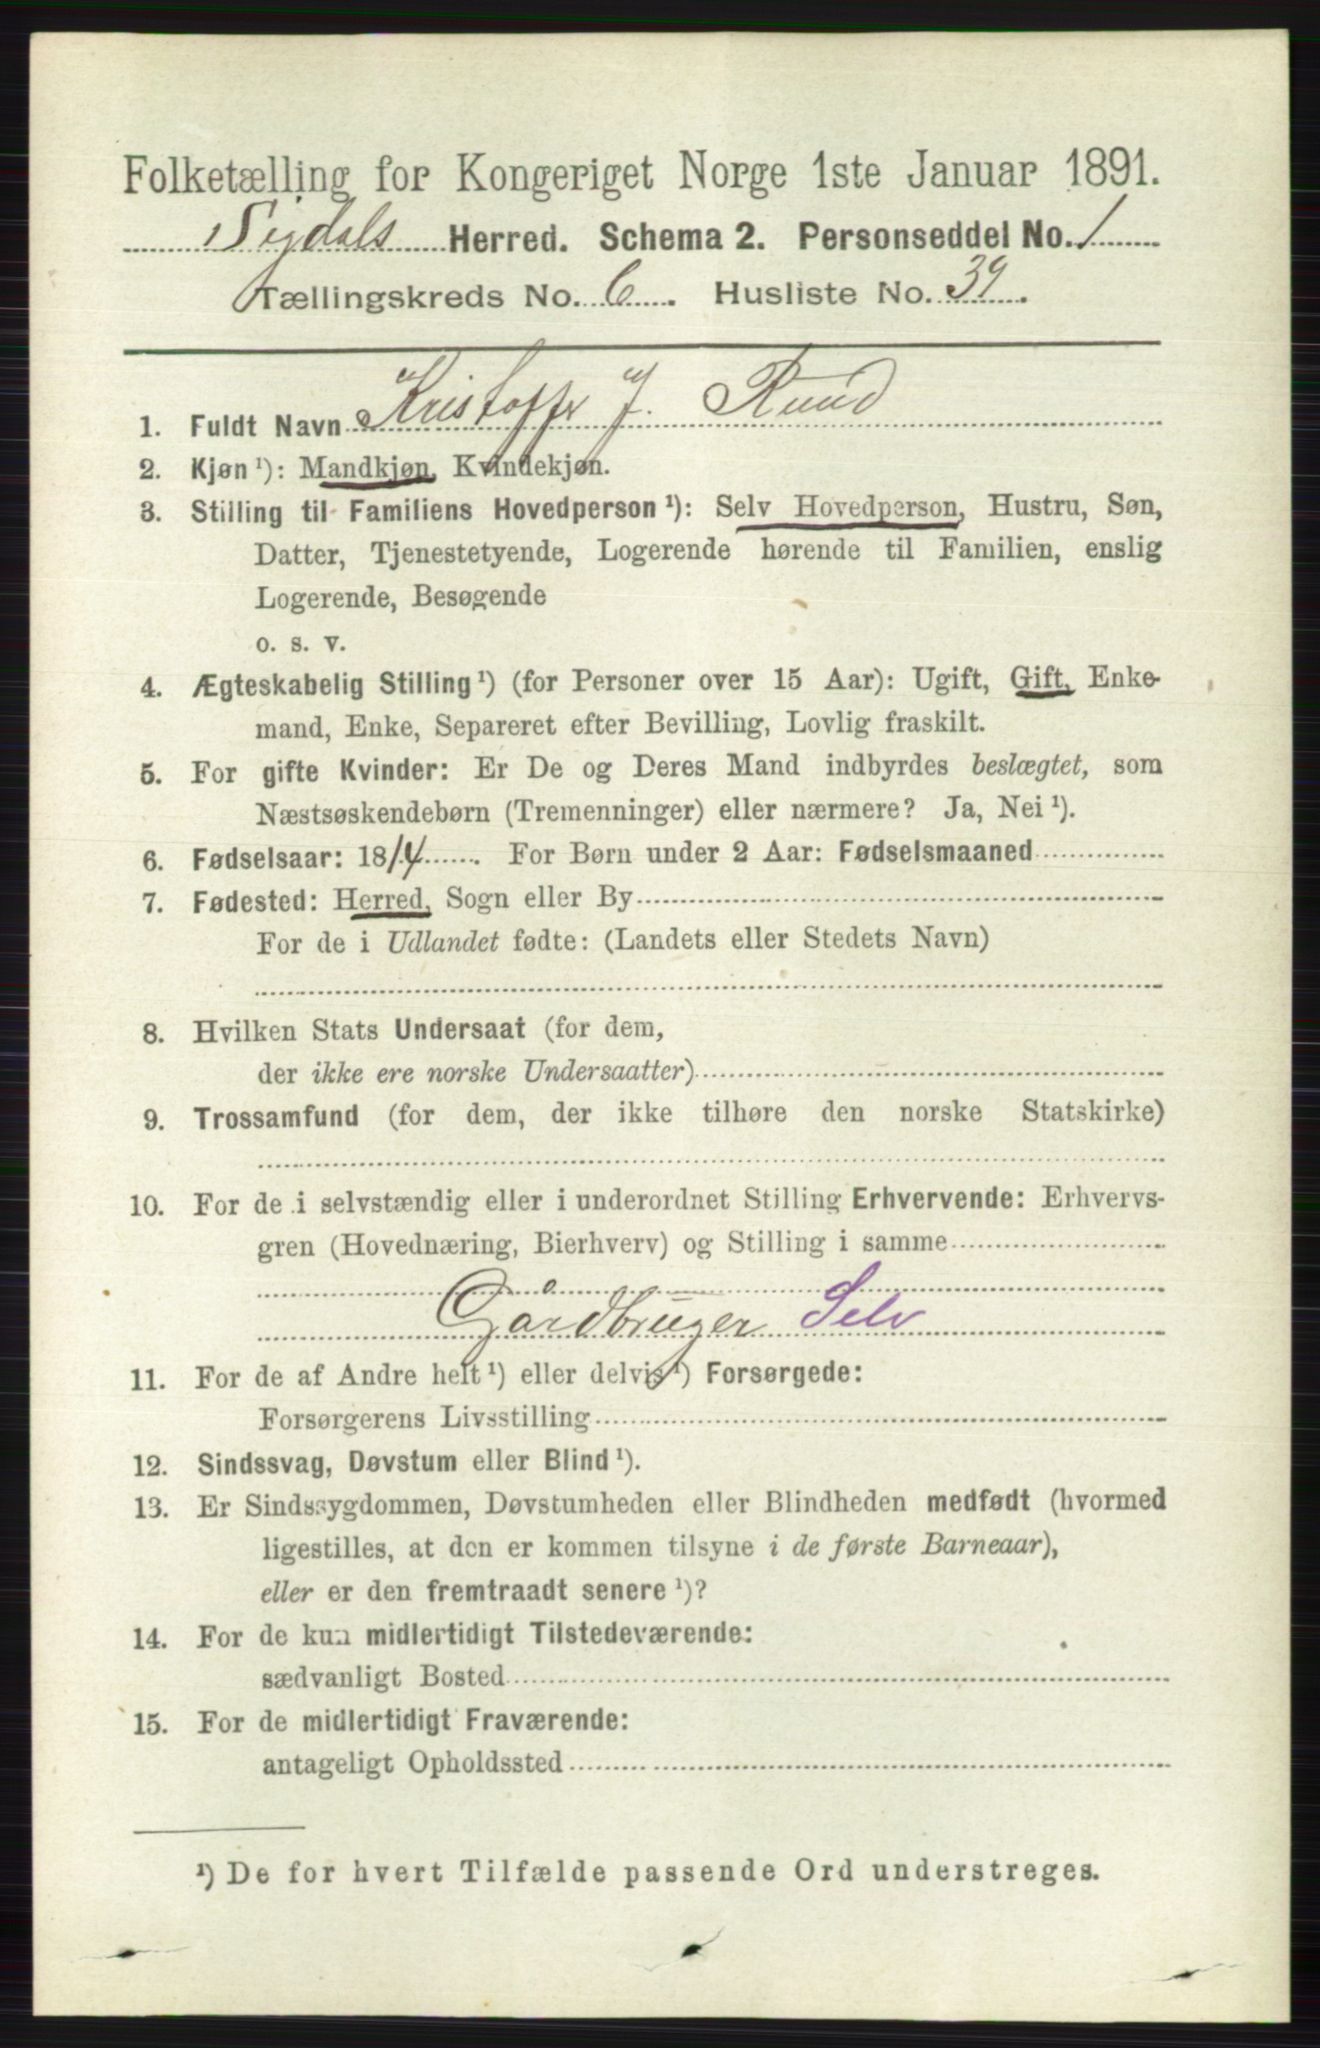 Folketælling for Kongeriget Norge 1ste Januar 1891.
Sigdals Herred. Schema 2. Personseddel No. 1
Tællingskreds No. 6. Husliste No. 39.
1. Fuldt Navn Kristoffer J. Ruud
2. Kjøn ¹): Mandkjøn, Kvindekjøn.
3. Stilling til Familiens Hovedperson ¹): Selv Hovedperson, Hustru, Søn,
Datter, Tjenestetyende, Logerende hørende til Familien, enslig
Logerende, Besøgende
o. s. v.
4. Ægteskabelig Stilling ¹) (for Personer over 15 Aar): Ugift, Gift, Enke-
mand, Enke, Separeret efter Bevilling, Lovlig fraskilt.
5. For gifte Kvinder: Er De og Deres Mand indbyrdes beslægtet, som
Næstsøskendebørn (Tremenninger) eller nærmere? Ja, Nei ¹).
6. Fødselsaar: 1814. For Børn under 2 Aar: Fødselsmaaned
7. Fødested: Herred, Sogn eller By
For de i Udlandet fødte: (Landets eller Stedets Navn)
8. Hvilken Stats Undersaat (for dem,
der ikke ere norske Undersaatter)
9. Trossamfund (for dem, der ikke tilhøre den norske Statskirke)
10. For de i selvstændig eller i underordnet Stilling Erhvervende: Erhvervs-
gren (Hovednæring, Bierhverv) og Stilling i samme
Gårdbruger Selv
11. For de af Andre helt ¹) eller delvis ¹) Forsørgede:
Forsørgerens Livsstilling
12. Sindssvag, Døvstum eller Blind ¹).
13. Er Sindssygdommen, Døvstumheden eller Blindheden medfødt (hvormed
ligestilles, at den er kommen tilsyne i de første Barneaar),
eller er den fremtraadt senere ¹)?
14. For de kun midlertidigt Tilstedeværende:
sædvanligt Bosted
15. For de midlertidigt Fraværende:
antageligt Opholdssted
¹) De for hvert Tilfælde passende Ord understreges.